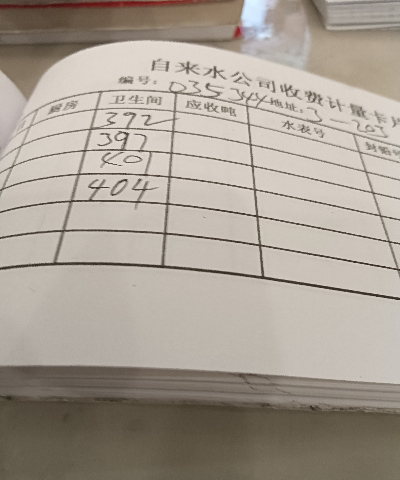 自来水公司收费计量卡
编号: 035344 地址: 3-203
厨房 卫生间 应收吨 水表号
392
397
40
404